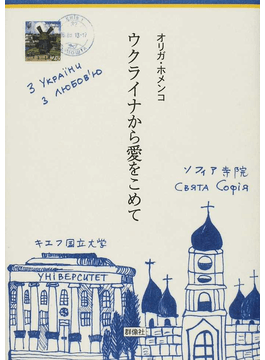 オリガ・ホメンコ
ウクライナから愛をこめて
З УКРАЇНИ
З ЛЮБОВ'Ю
ソフィア寺院
СВЯТА СОФІЯ
キエフ国立大学
УНІВЕРСИТЕТ
群像社